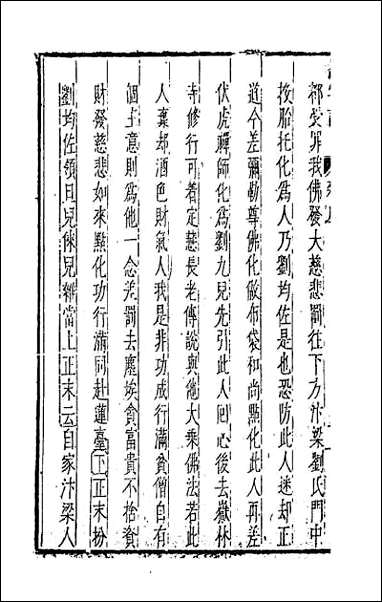 都不罪我佛發大慈悲罰往下方汴梁劉氏門中
投胎托化爲人乃劉均佐是也恐防此人迷却正
道今差彌勒尊佛化做布袋和尚點化此人再差
伏虎禪師化爲劉九兒先引此人回心後去嶽林
寺修行可着定慧長老傳説與他大乘佛法若此
人棄却酒色財氣人我是非功成行滿貧僧自有
個主意則爲他一念差罰去塵埃貪富貴不捨資
財發慈悲如來點化功行滿同赴蓮臺下正末扮
劉均佐領旦兒倈兒雜當上正末云自家汴梁人